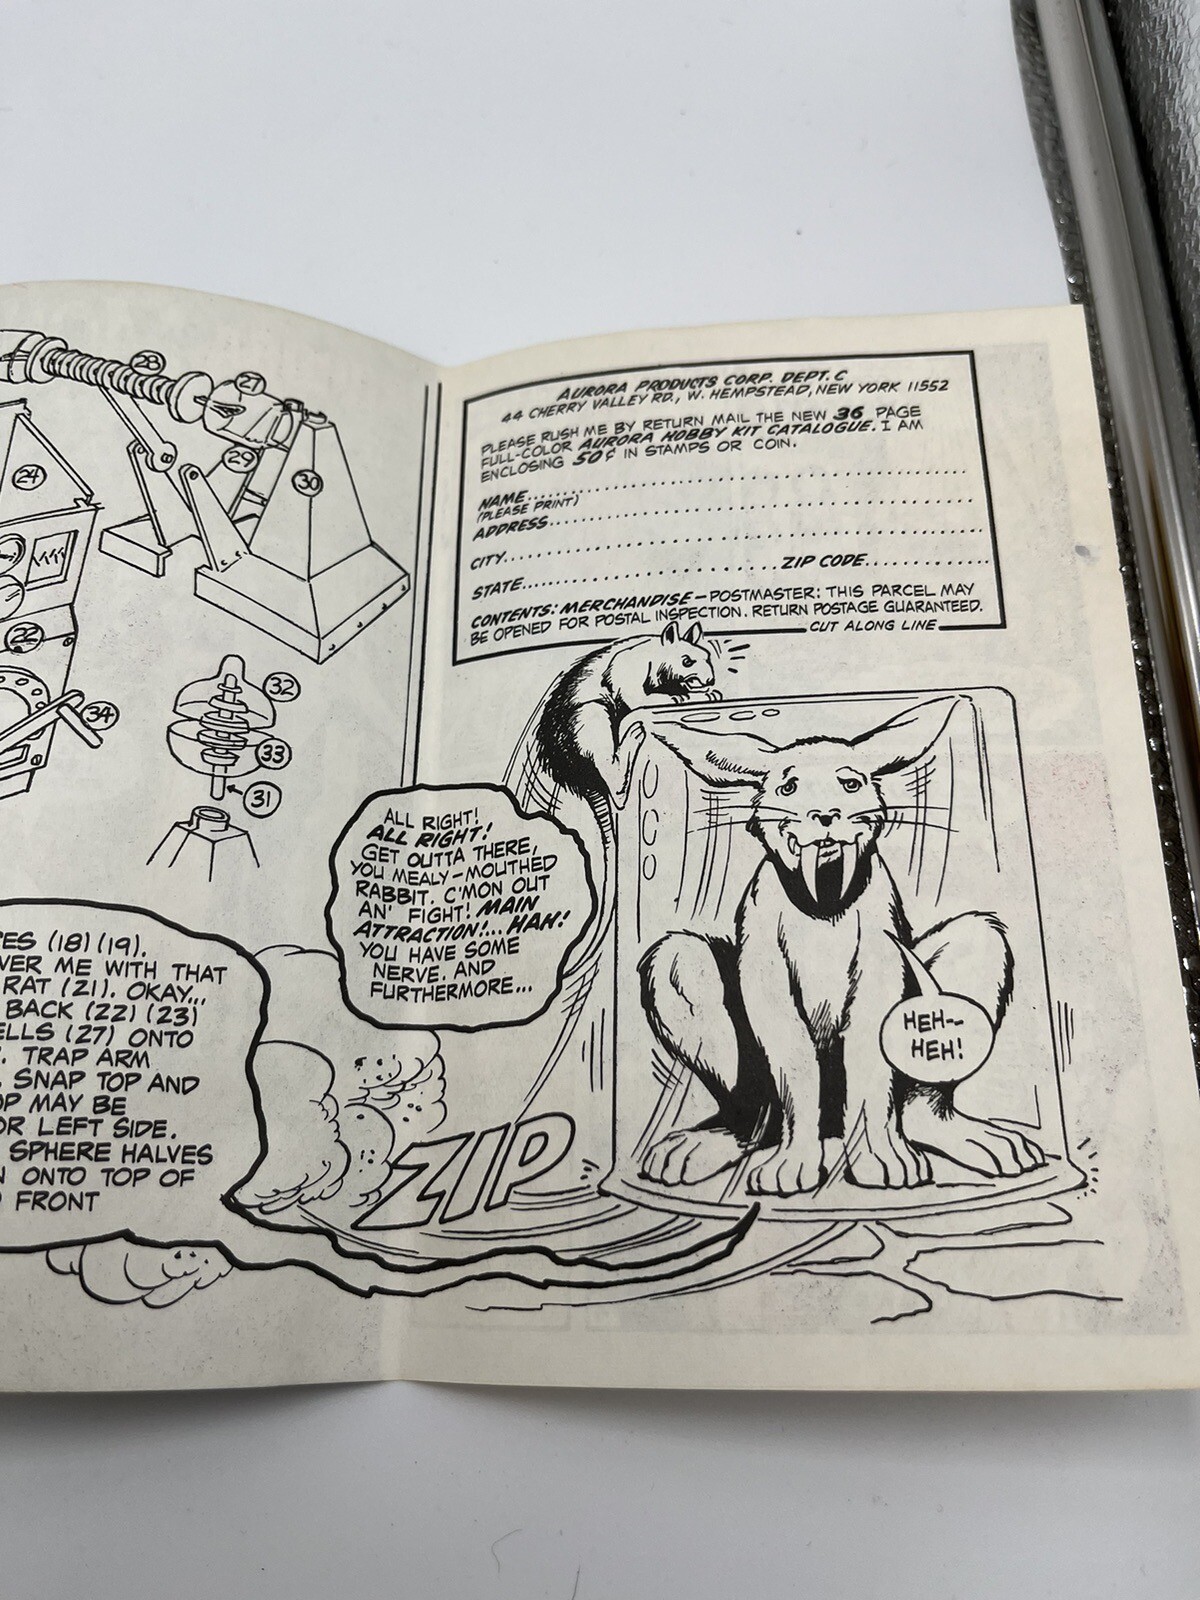 28
27
24
29
30
22
32
34
33
31
AURORA PRODUCTS CORP. DEPT. C
44 CHERRY VALLEY RD., W. HEMPSTEAD, NEW YORK 11552
PLEASE RUSH ME BY RETURN MAIL THE NEW 36 PAGE
FULL-COLOR AURORA HOBBY KIT CATALOGUE. I AM
ENCLOSING 50¢ IN STAMPS OR COIN.
NAME
(PLEASE PRINT)
ADDRESS
CITY
STATE ZIP CODE
CONTENTS: MERCHANDISE — POSTMASTER: THIS PARCEL MAY
BE OPENED FOR POSTAL INSPECTION. RETURN POSTAGE GUARANTEED.
CUT ALONG LINE
ALL RIGHT!
ALL RIGHT!
GET OUTTA THERE,
YOU MEALY-MOUTHED
RABBIT. C'MON OUT
AN' FIGHT! MAIN
ATTRACTION!... HAH!
YOU HAVE SOME
NERVE. AND
FURTHERMORE...
(18) (19).
ME WITH THAT
RAT (21). OKAY...
BACK (22) (23)
(27) ONTO
TRAP ARM
SNAP TOP AND
MAY BE
OR LEFT SIDE.
SPHERE HALVES
ONTO TOP OF
FRONT
HEH--
HEH!
ZIP